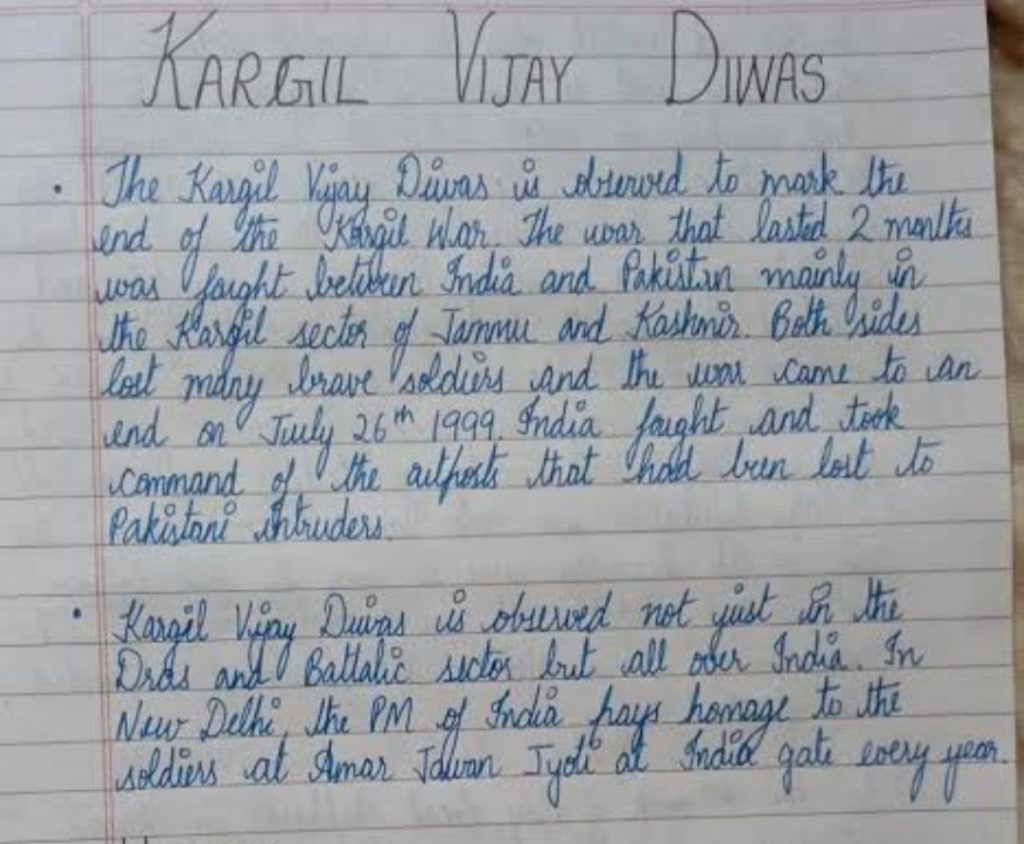 KARGIL VIJAY DIWAS
• The Kargil Vijay Diwas is observed to mark the
end of the Kargil War. The war that lasted 2 months
was faught between India and Pakistan mainly in
the Kargil sector of Jammu and Kashmir. Both sides
lost many brave soldiers and the war came to an
end on July 26th 1999. India faught and took
command of the outposts that had been lost to
Pakistani intruders.
• Kargil Vijay Diwas is observed not just in the
Dras and Battalic sector but all over India. In
New Delhi, the PM of India pays homage to the
soldiers at Amar Jawan Jyoti at India gate every year.